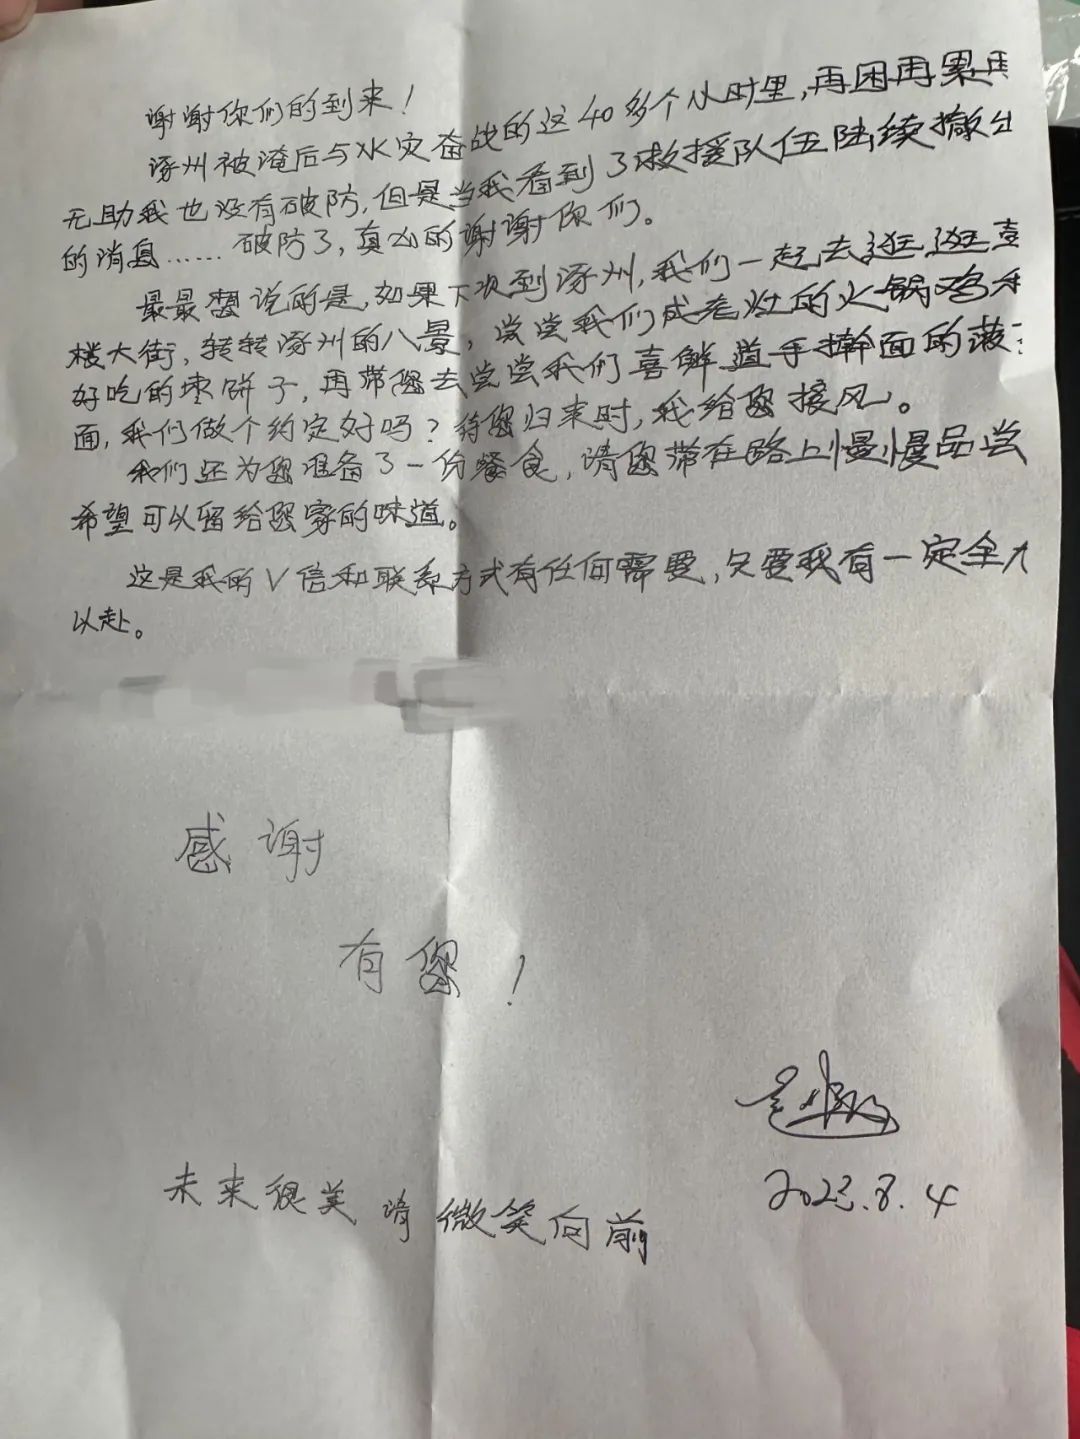 谢谢你们的到来！
涿州被淹后与水灾奋战的这40多个小时里，再困再累再
无助我也没有破防，但是当我看到了救援队伍陆续撤出
的消息……破防了，真心的谢谢你们。
最最想说的是，如果下次到涿州，我们一起去逛逛
楼大街，转转涿州的八景，尝尝我们成老灶的火锅鸡
好吃的枣饼子，再带您去尝尝我们喜鲜道手擀面的
面，我们做个约定好吗？待您归来时，我给您接风。
我们还为您准备了一份餐食，请您带在路上慢慢品尝
希望可以留给您家的味道。
这是我的V信和联系方式有任何需要，只要我有一定全力
以赴。
感谢
有您！
2023.8.4
未来很美 请微笑向前